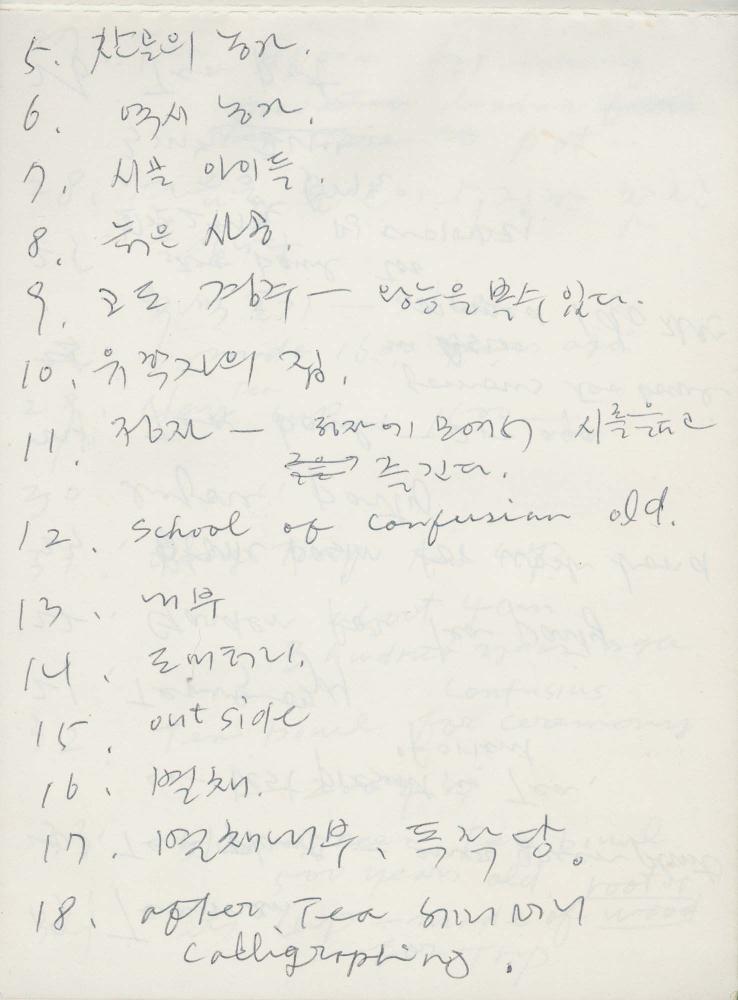 5. 찬물의 농가.
6. 역시 농가.
7. 시골 아이들.
8. 늙은 서숭.
9. 고도 경주 — 왕능을 볼수 있다.
10. 유학자의 집.
11. 정자 — 정자에 모여서 시를 읊고
즐긴다.
12. School of confusian old.
13. 내부
14.
15. out side
16. 별채.
17. 별채내부, 독락당.
18. after Tea
Calligraphing.